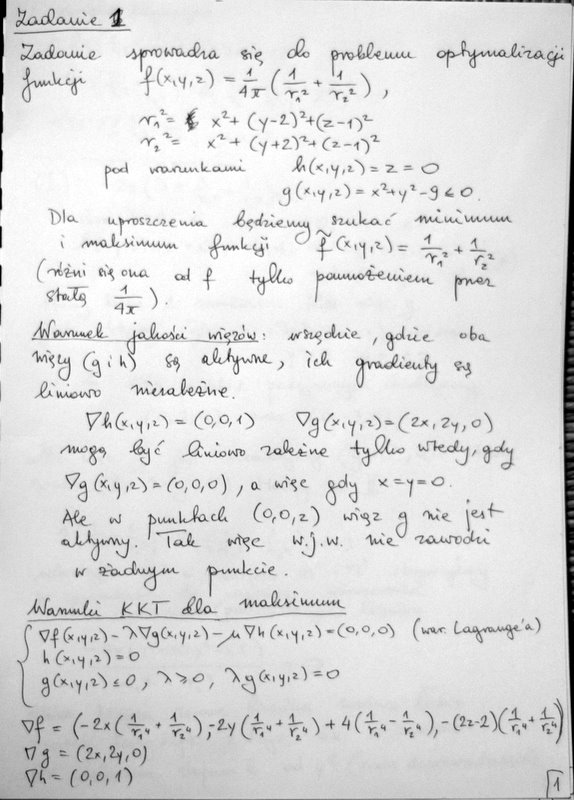 Zadanie 1
Zadanie sprowadza się do problemu optymalizacji
funkcji f(x,y,z) = 1/4π (1/r₁² + 1/r₂²),
r₁² = x² + (y-2)² + (z-1)²
r₂² = x² + (y+2)² + (z-1)²
pod warunkami h(x,y,z) = z = 0
g(x,y,z) = x² + y² - 9 ≤ 0.
Dla uproszczenia będziemy szukać minimum
i maksimum funkcji f̃(x,y,z) = 1/r₁² + 1/r₂²
(różni się ona od f tylko pomnożeniem przez
stałą 1/4π).
Warunek jakości więzów: wszędzie, gdzie oba
więzy (g i h) są aktywne, ich gradienty są
liniowo niezależne.
∇h(x,y,z) = (0,0,1) ∇g(x,y,z) = (2x, 2y, 0)
mogą być liniowo zależne tylko wtedy, gdy
∇g(x,y,z) = (0,0,0), a więc gdy x=y=0.
Ale w punktach (0,0,z) więz g nie jest
aktywny. Tak więc w.j.w. nie zawodzi
w żadnym punkcie.
Warunki KKT dla maksimum
{ ∇f(x,y,z) - λ∇g(x,y,z) - μ∇h(x,y,z) = (0,0,0) (war. Lagrange'a)
h(x,y,z) = 0
g(x,y,z) ≤ 0, λ ≥ 0, λg(x,y,z) = 0
∇f = (-2x(1/r₁⁴ + 1/r₂⁴), -2y(1/r₁⁴ + 1/r₂⁴) + 4(1/r₁⁴ - 1/r₂⁴), -(2z-2)(1/r₁⁴ + 1/r₂⁴)
∇g = (2x, 2y, 0)
∇h = (0,0,1)
1